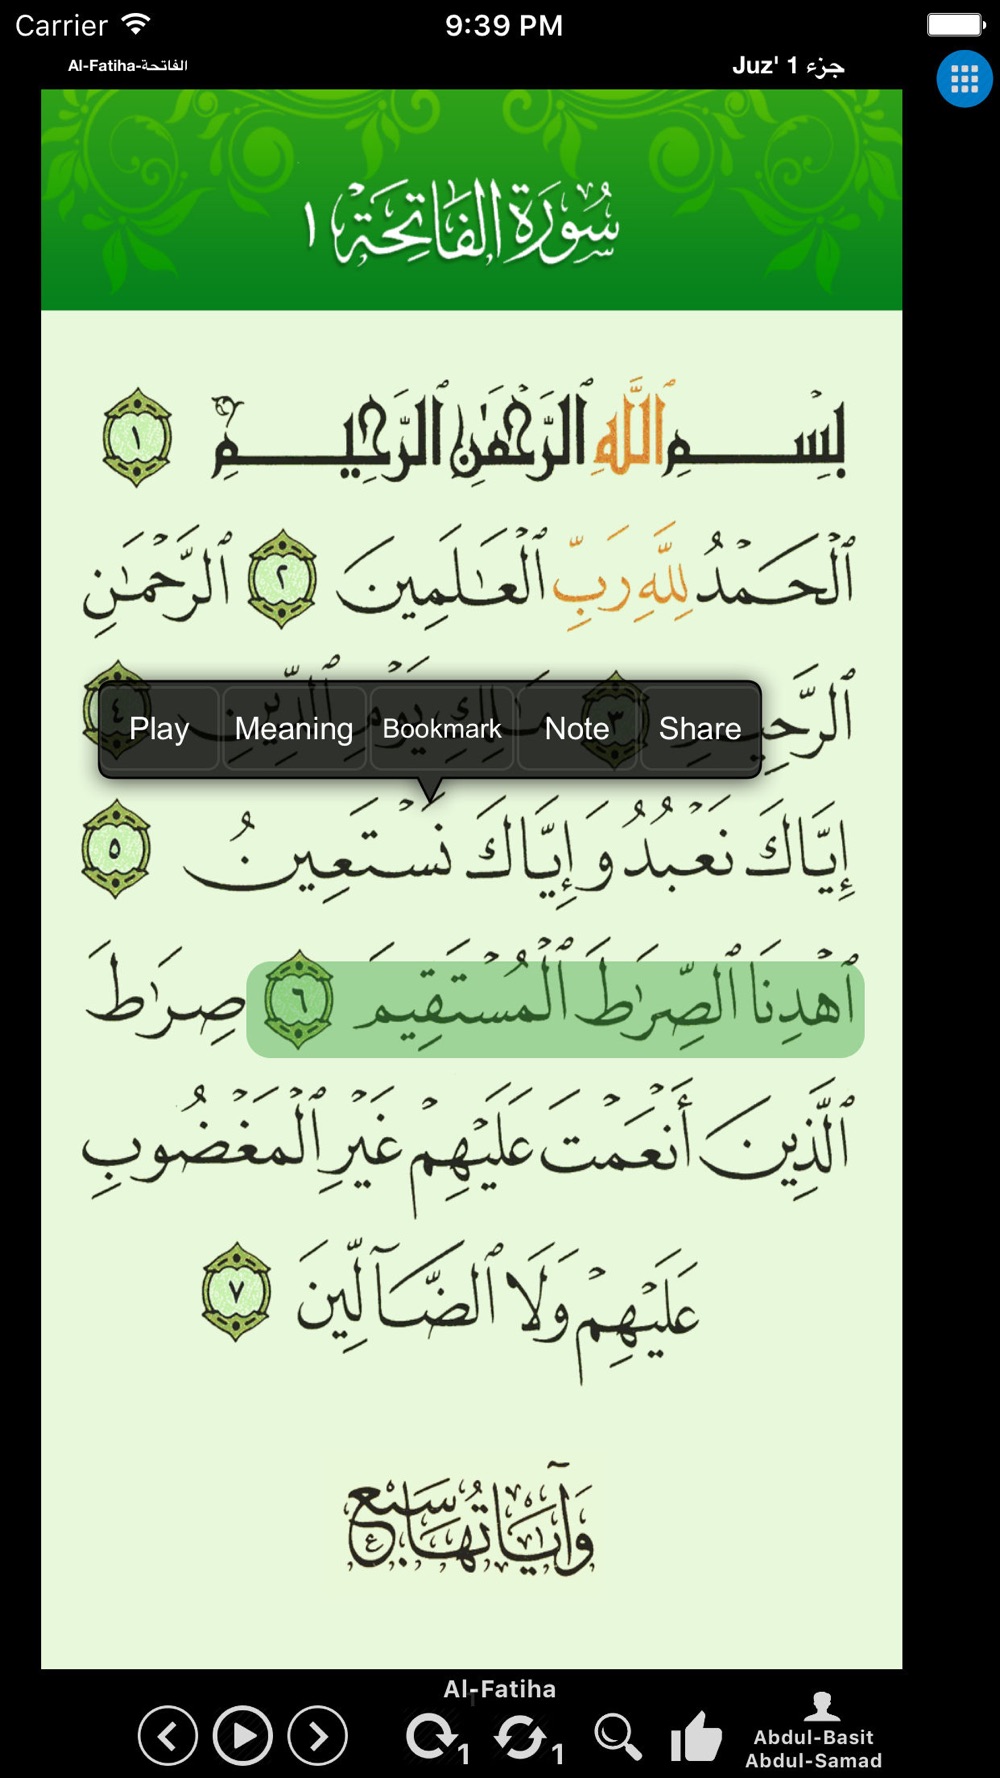 Carrier 9:39 PM
Al-Fatiha-الفاتحة Juz' 1 جزء
سُورَةُ الفَاتِحَة ١
بِسْمِ ٱللَّهِ ٱلرَّحْمَٰنِ ٱلرَّحِيمِ ١
ٱلْحَمْدُ لِلَّهِ رَبِّ ٱلْعَٰلَمِينَ ٢ ٱلرَّحْمَٰنِ
ٱلرَّحِيمِ ٣ مَٰلِكِ يَوْمِ ٱلدِّينِ ٤
Play Meaning Bookmark Note Share
إِيَّاكَ نَعْبُدُ وَإِيَّاكَ نَسْتَعِينُ ٥
ٱهْدِنَا ٱلصِّرَٰطَ ٱلْمُسْتَقِيمَ ٦ صِرَٰطَ
ٱلَّذِينَ أَنْعَمْتَ عَلَيْهِمْ غَيْرِ ٱلْمَغْضُوبِ
عَلَيْهِمْ وَلَا ٱلضَّآلِّينَ ٧
وَآيَاتُهَا سَبْع
Al-Fatiha
1
1 1
Abdul-Basit
Abdul-Samad